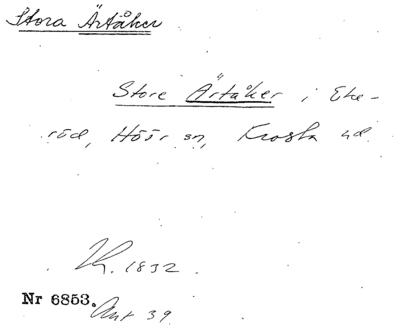 Stora Ärtåker
Store Ärtåker i Eke-
röd, Höör sn, Frosta hd
1832.
Nr 6853.
Ant 39